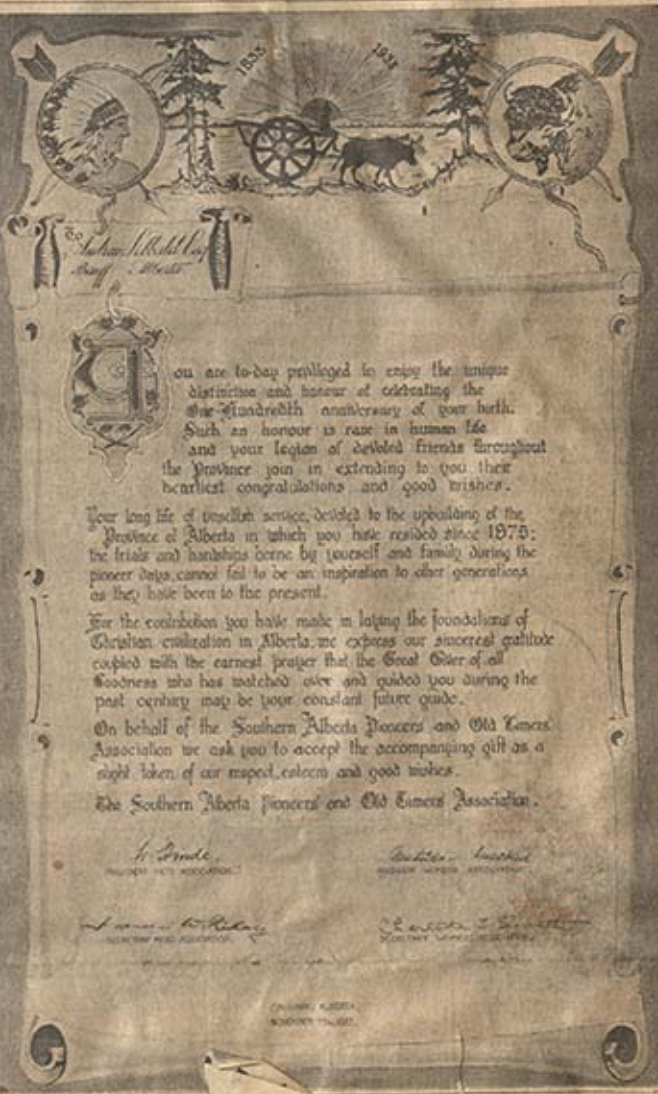 1833 1933
To
Banff Alberta
You are to-day privileged to enjoy the unique
distinction and honour of celebrating the
One-Hundredth anniversary of your birth.
Such an honour is rare in human life
and your legion of devoted friends throughout
the Province join in extending to you their
heartiest congratulations and good wishes.
Your long life of unselfish service, devoted to the upbuilding of the
Province of Alberta in which you have resided since 1875;
the trials and hardships borne by yourself and family during the
pioneer days, cannot fail to be an inspiration to other generations
as they have been to the present.
For the contribution you have made in laying the foundations of
Christian civilization in Alberta, we express our sincerest gratitude
coupled with the earnest prayer that the Great Giver of all
Goodness who has watched over and guided you during the
past century may be your constant future guide.
On behalf of the Southern Alberta Pioneers' and Old Timers'
Association we ask you to accept the accompanying gift as a
slight token of our respect, esteem and good wishes.
The Southern Alberta Pioneers' and Old Timers' Association.
PRESIDENT MEN'S ASSOCIATION. PRESIDENT WOMEN'S ASSOCIATION.
SECRETARY MEN'S ASSOCIATION. SECRETARY WOMEN'S ASSOCIATION.
CALGARY, ALBERTA,
NOVEMBER